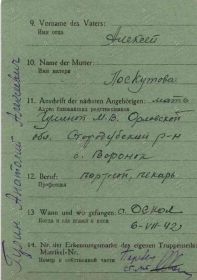 9. Vorname des Vaters:
Имя отца
Алексей
10. Name der Mutter:
Имя матери
Лоскутова
11. Anschrift der nächsten Angehörigen:
Адрес ближайших родственников
М.В. Орловской
обл. Стародубский р-н
с. Воронок
12. Beruf:
Профессия
портной, пекарь
13. Wann und wo gefangen:
Когда и где взят в плен
г. Оскол
6-VII-42г
14. Nr. der Erkennungsmarke des eigenen
Matrikel-Nr.
Номер и
Анатолий Алексеевич